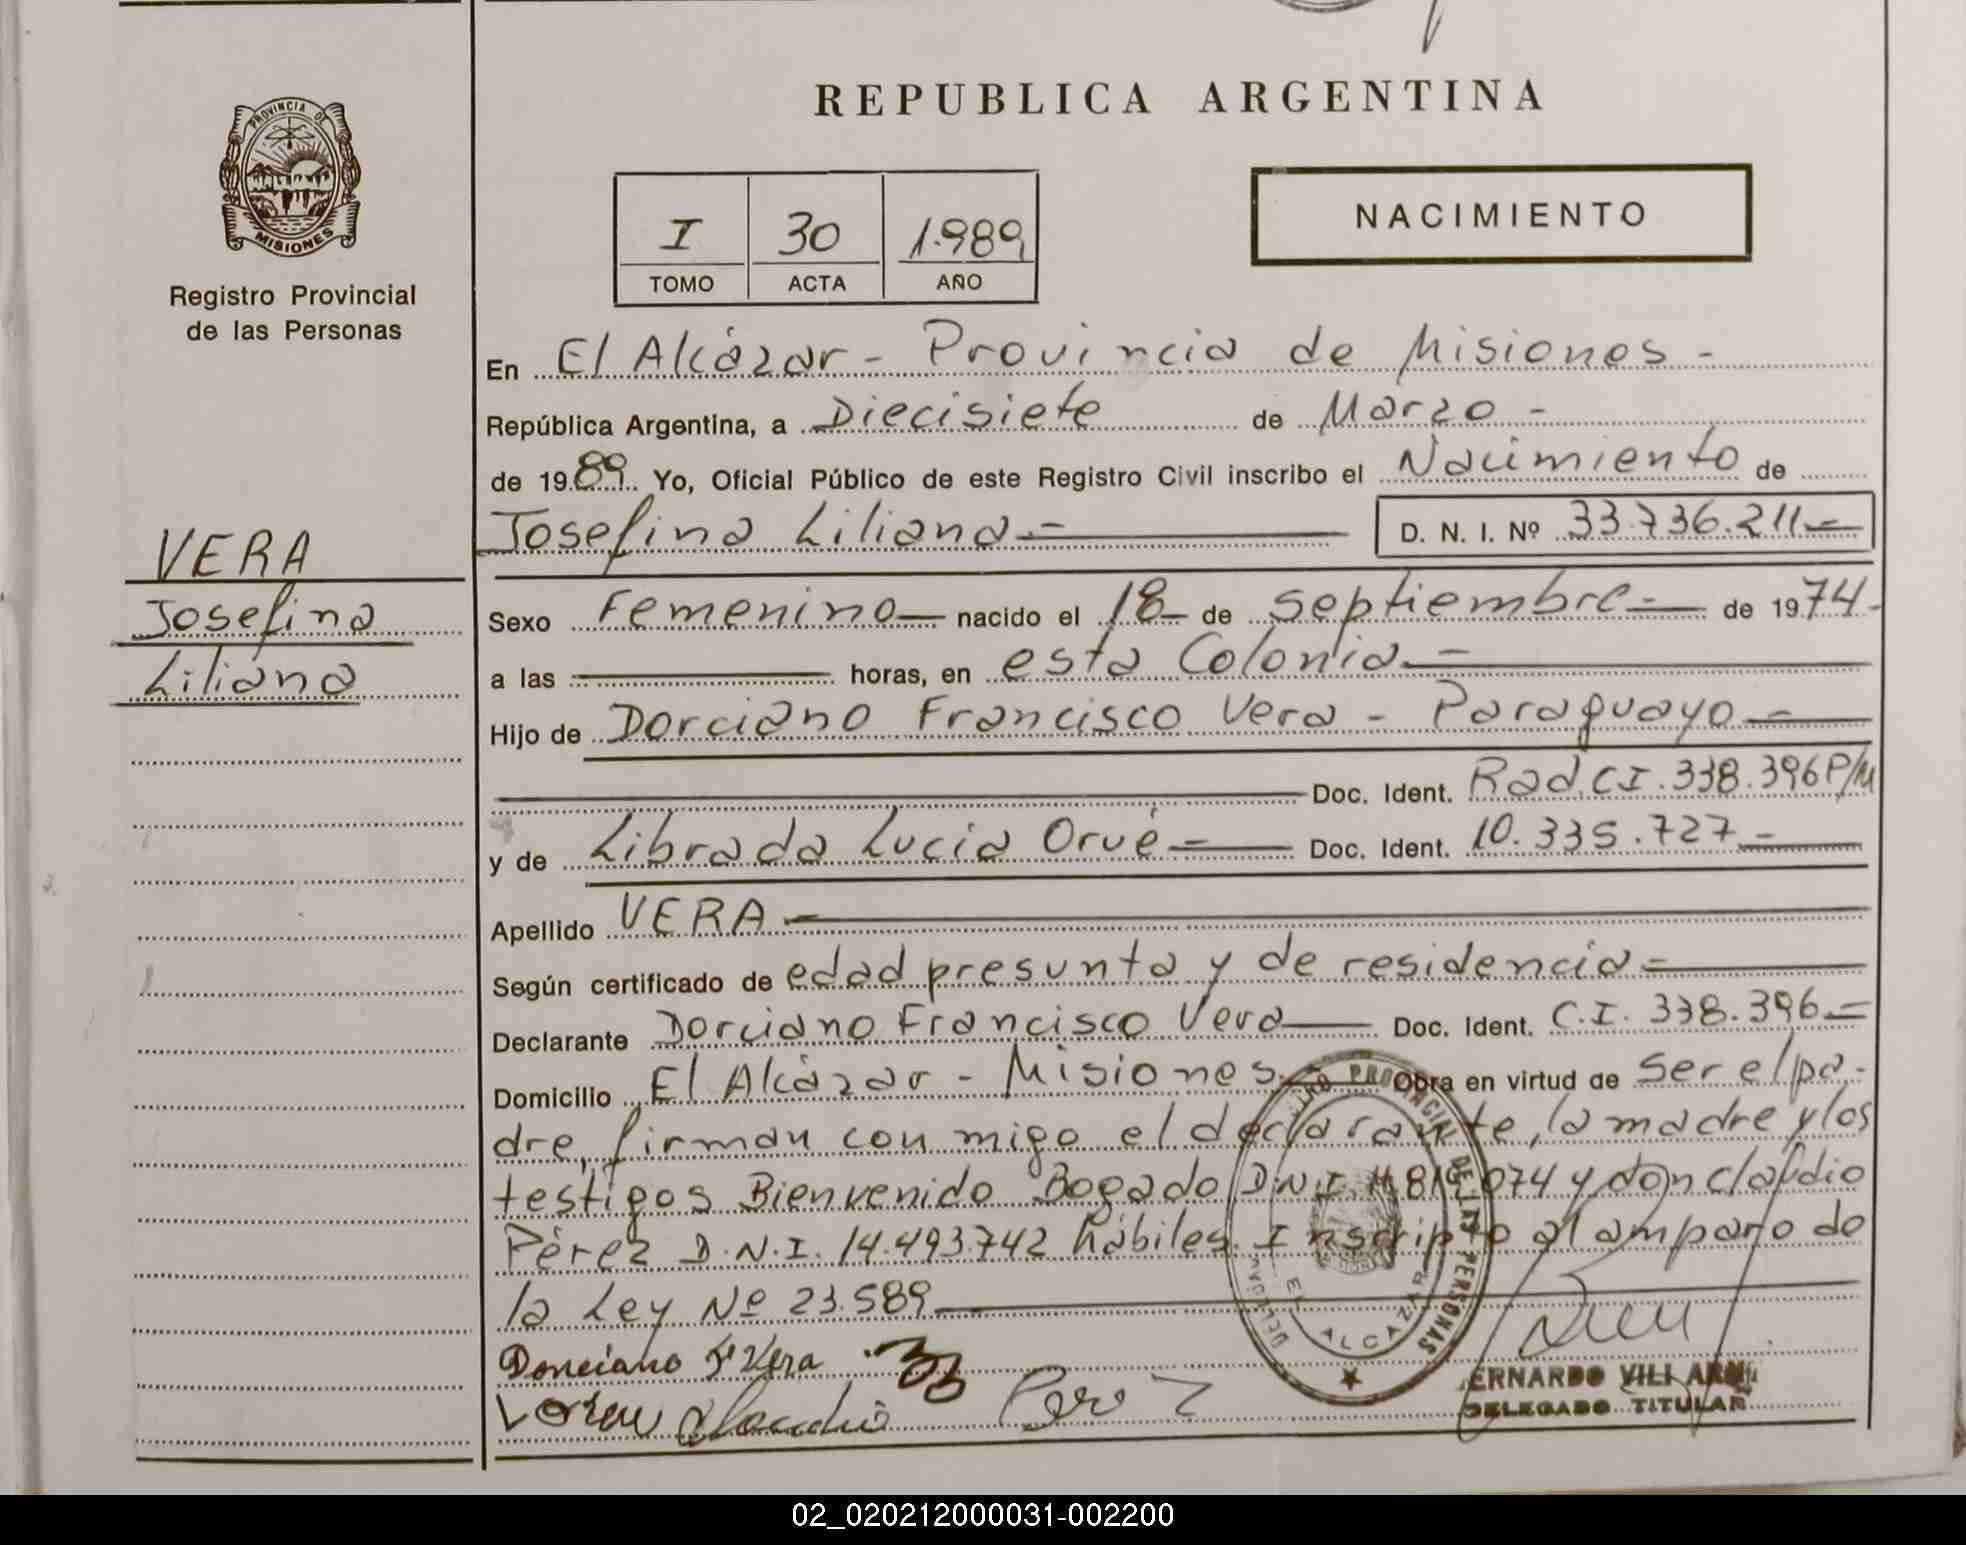 REPUBLICA ARGENTINA
PROVINCIA DE
MISIONES
Registro Provincial
de las Personas
I 30 1.989
TOMO ACTA AÑO
NACIMIENTO
En El Alcázar - Provincia de Misiones -
República Argentina, a Diecisiete de Marzo -
de 1989. Yo, Oficial Público de este Registro Civil inscribo el Nacimiento de
Josefina Liliana - D. N. I. Nº 33.736.211 -
VERA
Josefina
Liliana
Sexo Femenino nacido el 18 de septiembre - de 1974 -
a las horas, en esta Colonia -
Hijo de Dorciano Francisco Vera - Paraguayo -
Doc. Ident. Rad. C.I. 338.396 P/M
y de Librada Lucia Orué - Doc. Ident. 10.335.727 -
Apellido VERA -
Según certificado de edad presunta y de residencia -
Declarante Dorciano Francisco Vera Doc. Ident. C.I. 338.396 -
Domicilio El Alcázar - Misiones - Obra en virtud de ser el pa-
dre, firman con migo el declarante, la madre y los
testigos Bienvenido Bogado D.N.I. 074 y don Claudio
Pérez D.N.I. 14.493.742 hábiles. Inscripto al amparo de
la Ley Nº 23.589
Dorciano F Vera
Claudio Perez
PROVINCIAL DE LAS PERSONAS
EL ALCAZAR
ERNARDO VILLARN
DELEGADO TITULAR
02_020212000031-002200